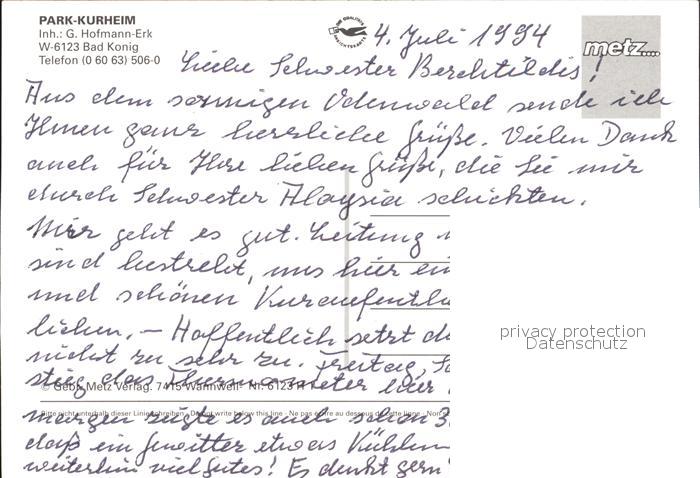 PARK-KURHEIM
Inh.: G. Hofmann-Erk
W-6123 Bad Konig
Telefon (0 60 63) 506-0
metz....
4. Juli 1994
Liebe Schwester Berchtildis!
Aus dem sonnigen Odenwald sende ich
Ihnen ganz herzliche Grüße. Vielen Dank
auch für Ihre lieben Grüße, die Sie mir
durch Schwester Aloysia schickten.
Mir geht es gut. Leitung
sind bestrebt, uns hier ein
und schönen Kuraufenth
lichen. – Hoffentlich setzt
nicht zu sehr zu. Freitag,
stieg das Thermometer hier
© Gebr. Metz Verlag. 7415 Wannweil Nr. 6123
Bitte nicht unterhalb dieser Linie schreiben. Do not write below this line - Ne pas écrire au dessous de cette ligne - Non
morgen zeigte es auch schon 3
daß ein Gewitter etwas Kühlun
weiterhin viel Gutes! Es denkt gern
privacy protection
Datenschutz